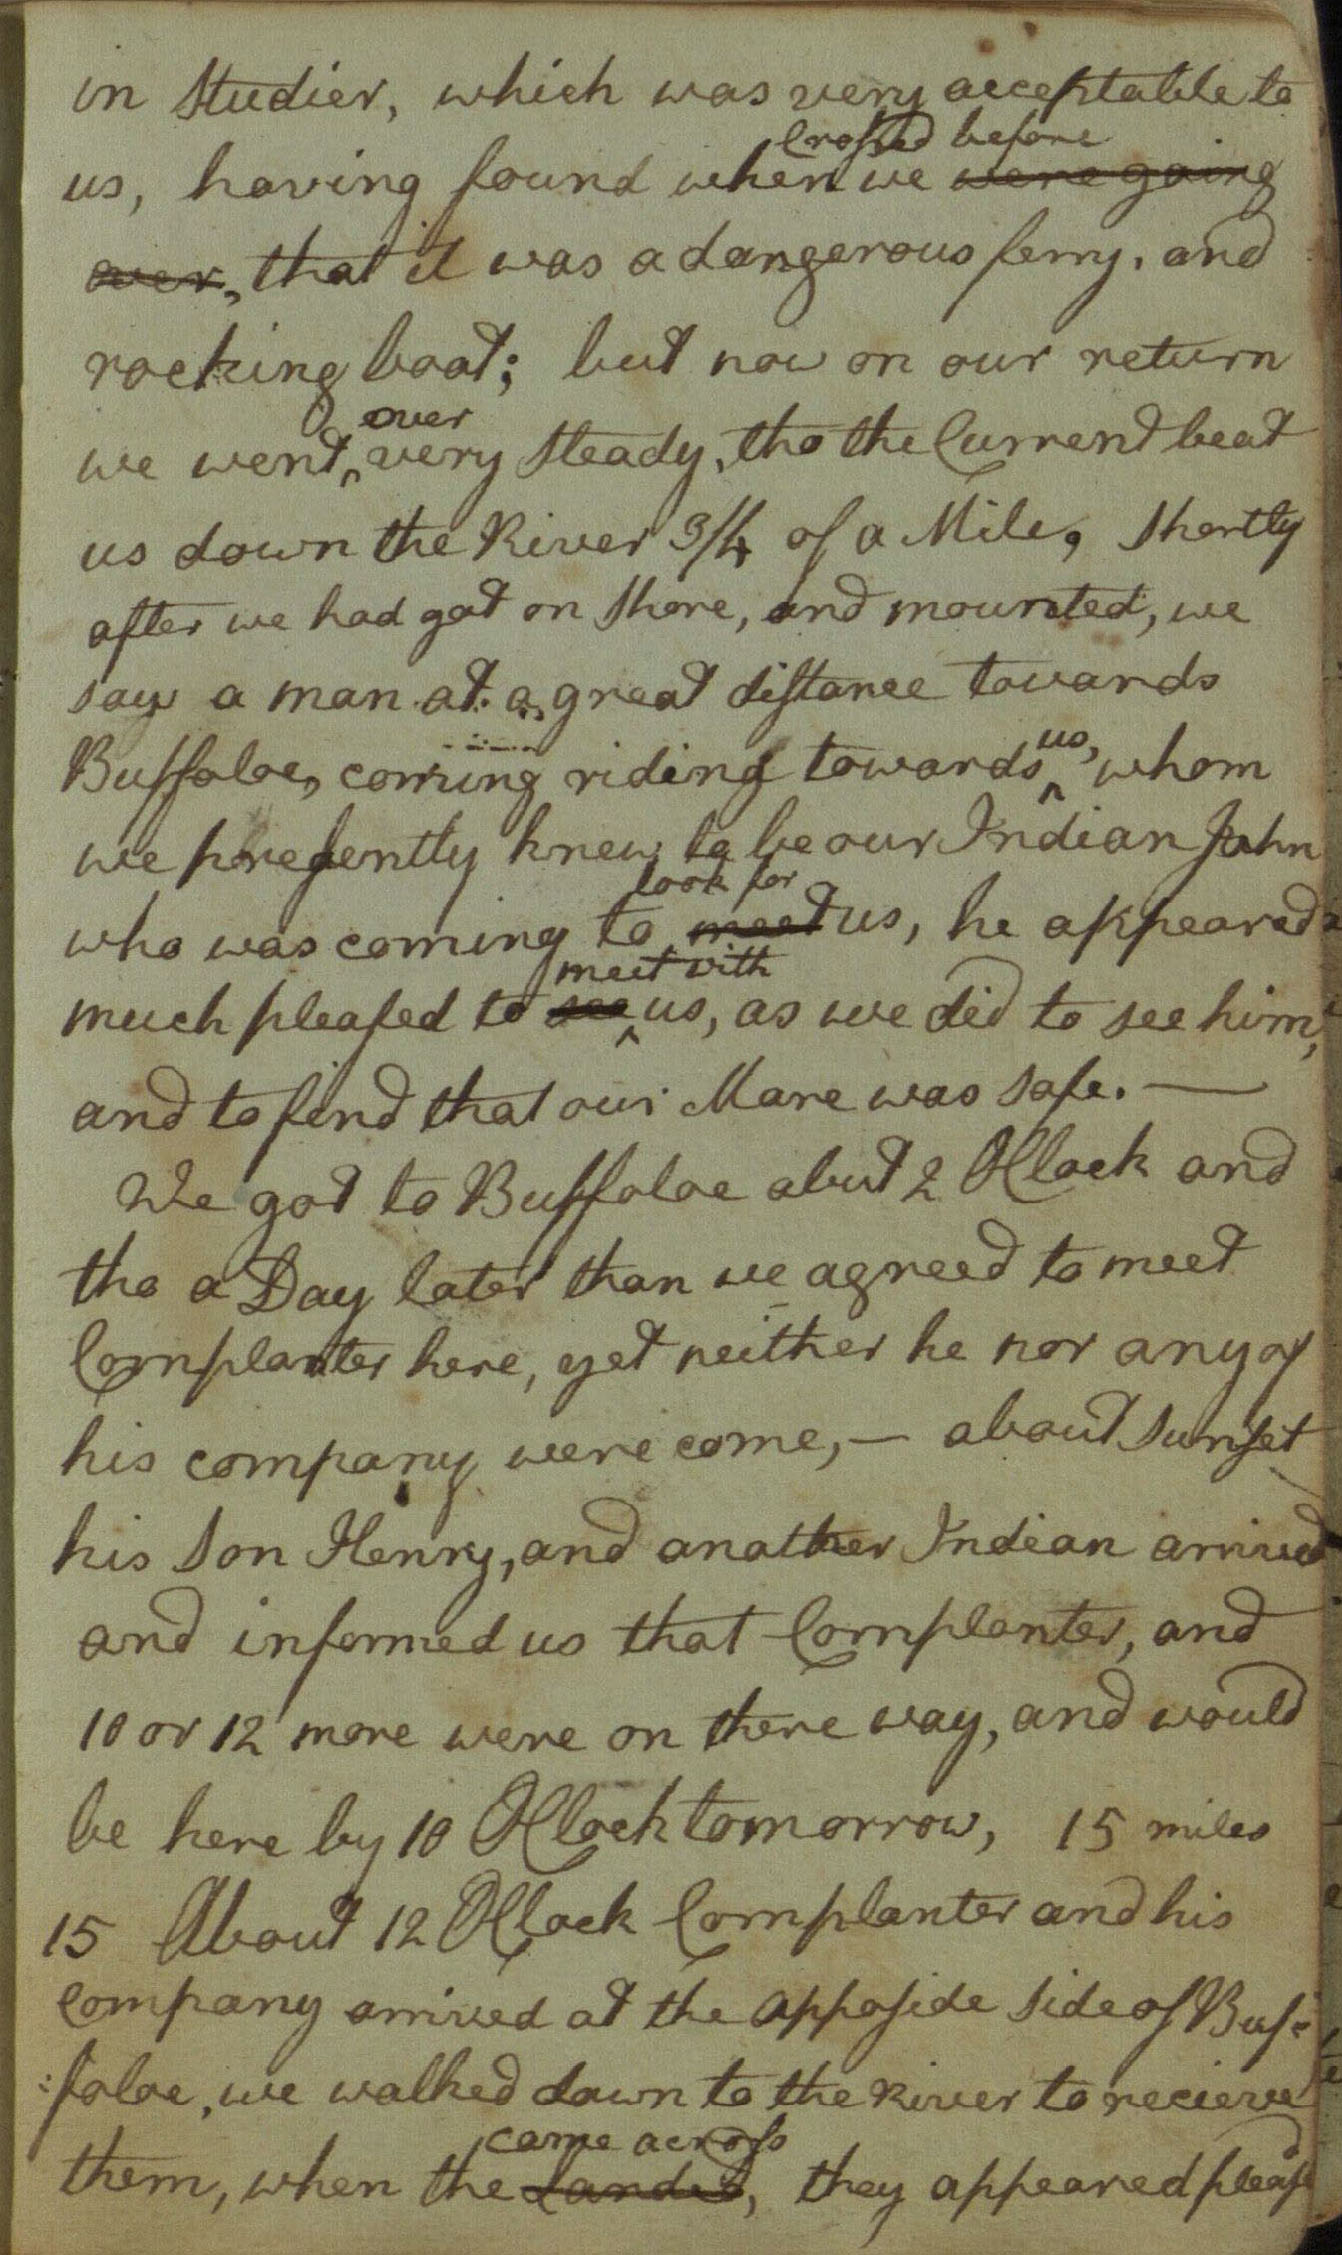 in Studier, which was very acceptable to
Crossed before
us, having found when we were going
over, that it was a dangerous ferry, and
rocking boat; but now on our return
over
we went, very Steady, tho the Current beat
us down the River 3/4 of a Mile, Shortly
after we had got on Shore, and mounted, we
saw a man at a great distance towards
Buffaloe, coming riding towards us, whom
we presently knew to be our Indian John
look for
who was coming to meet us, he appeared
meet with
much pleased to see us, as we did to see him,
and to find that our Mare was safe. —
We got to Buffaloe abut 2 OClock and
tho a Day later than we agreed to meet
Cornplanter here, yet neither he nor any of
his company were come, — about Sunset
his Son Henry, and another Indian arrived
and informed us that Cornplanter, and
10 or 12 more were on there way, and would
be here by 10 OClock tomorrow, 15 miles
15 About 12 OClock Cornplanter and his
Company arrived at the opposide side of Buf-
:faloe, we walked down to the River to recieve
came across
them, when the Landed, they appeared pleasd